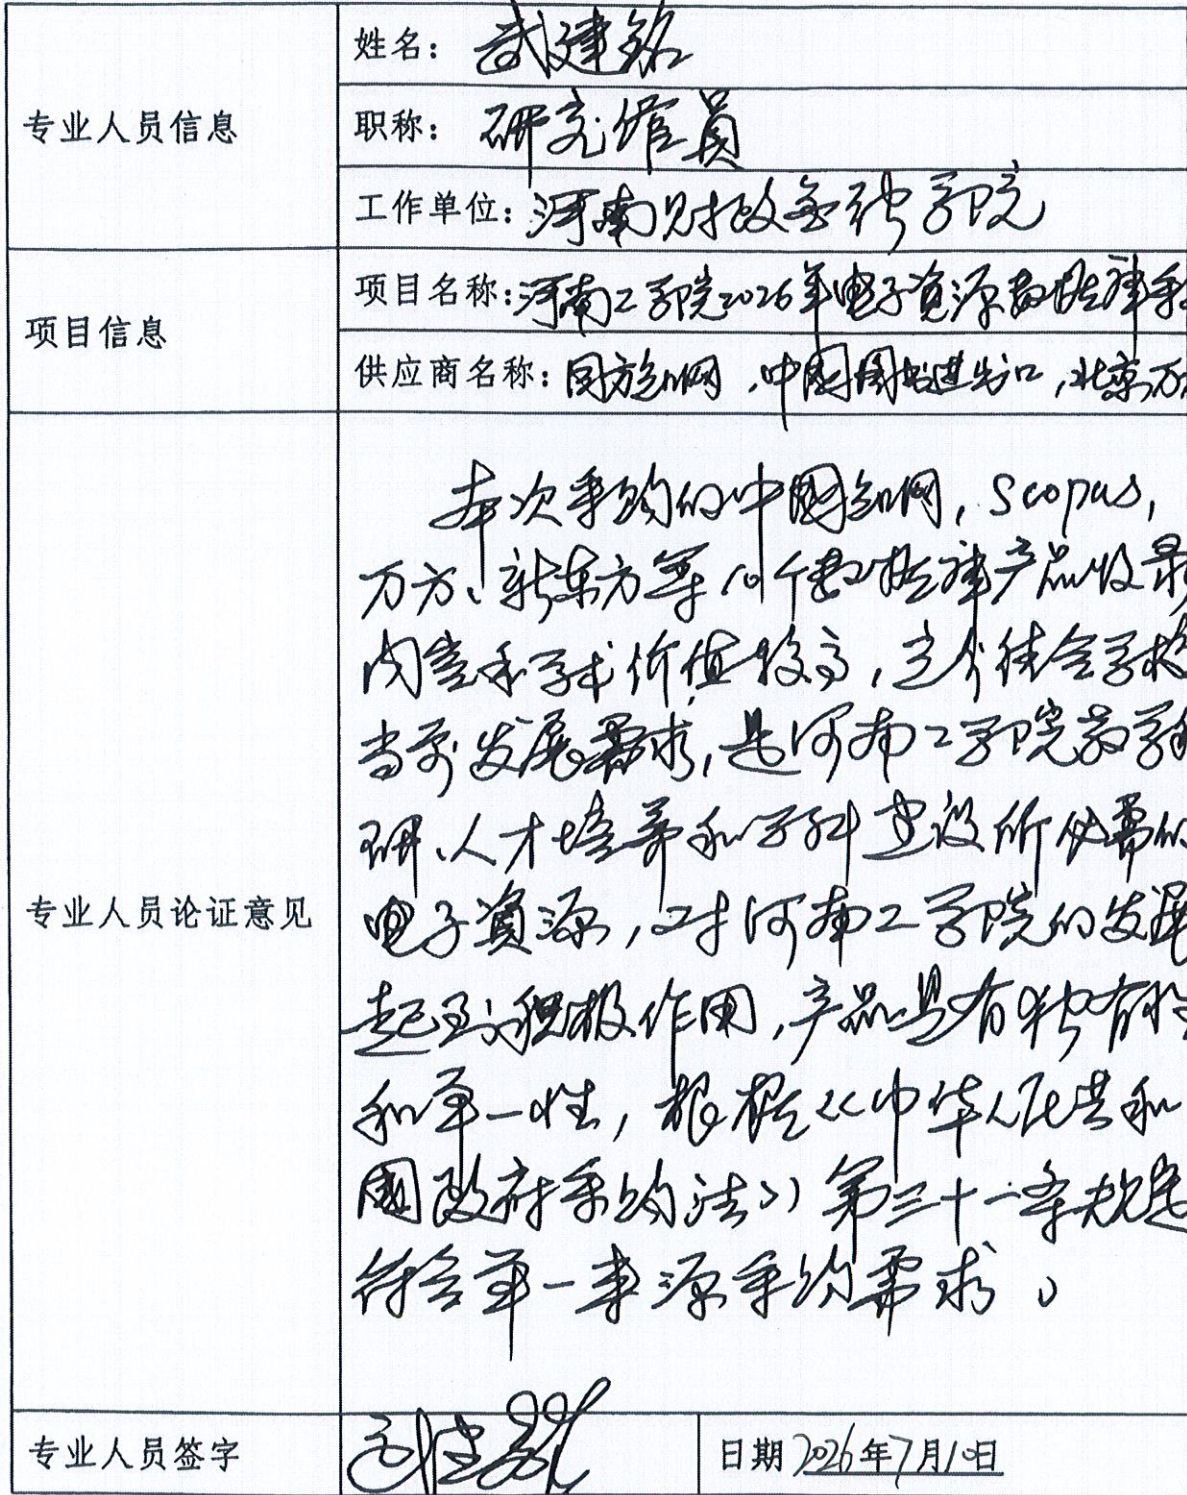 专业人员信息
姓名：武建铭
职称：研究馆员
工作单位：河南财政金融学院
项目信息
项目名称：河南工学院2026年电子资源数据库采
供应商名称：同方知网，中国图书进出口，北京万
专业人员论证意见
本次采购的中国知网，Scopus，
万方、新东方等10个数据库产品收录
内容和学术价值较高，充分结合学校
当前发展需求，是河南工学院教学科
研、人才培养和学科建设所必需的
电子资源，对河南工学院的发展
起到积极作用，产品具有独有性
和单一性，根据《中华人民共和
国政府采购法》第三十一条规定
符合单一来源采购需求。
专业人员签字
武建铭
日期 2026年7月10日